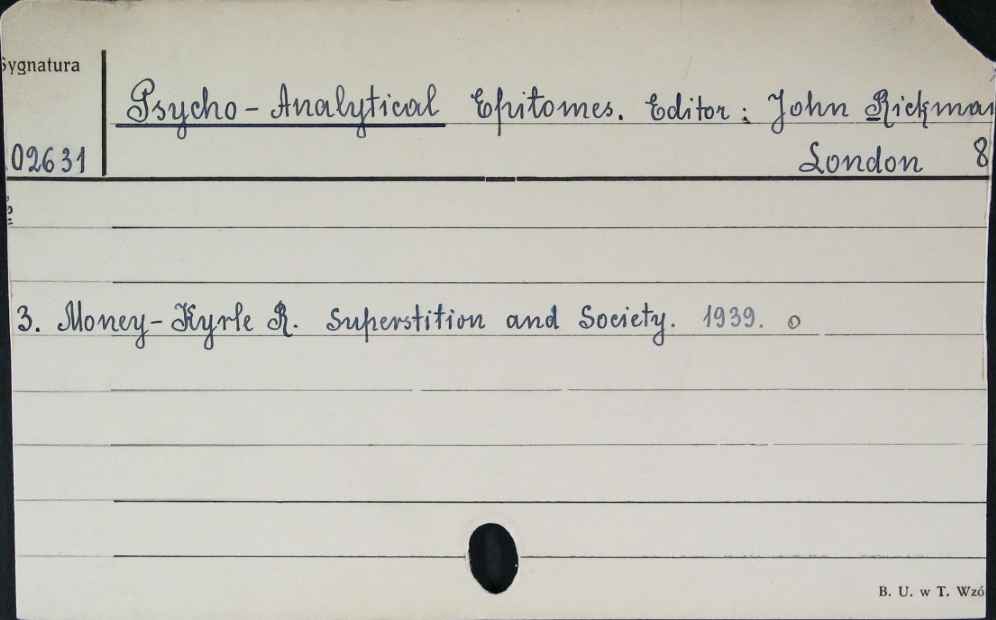 Sygnatura
Psycho-Analytical Epitomes. Editor: John Rickman
02631 London 8
3. Money-Kyrle R. Superstition and Society. 1939. o
B. U. w T. Wzó